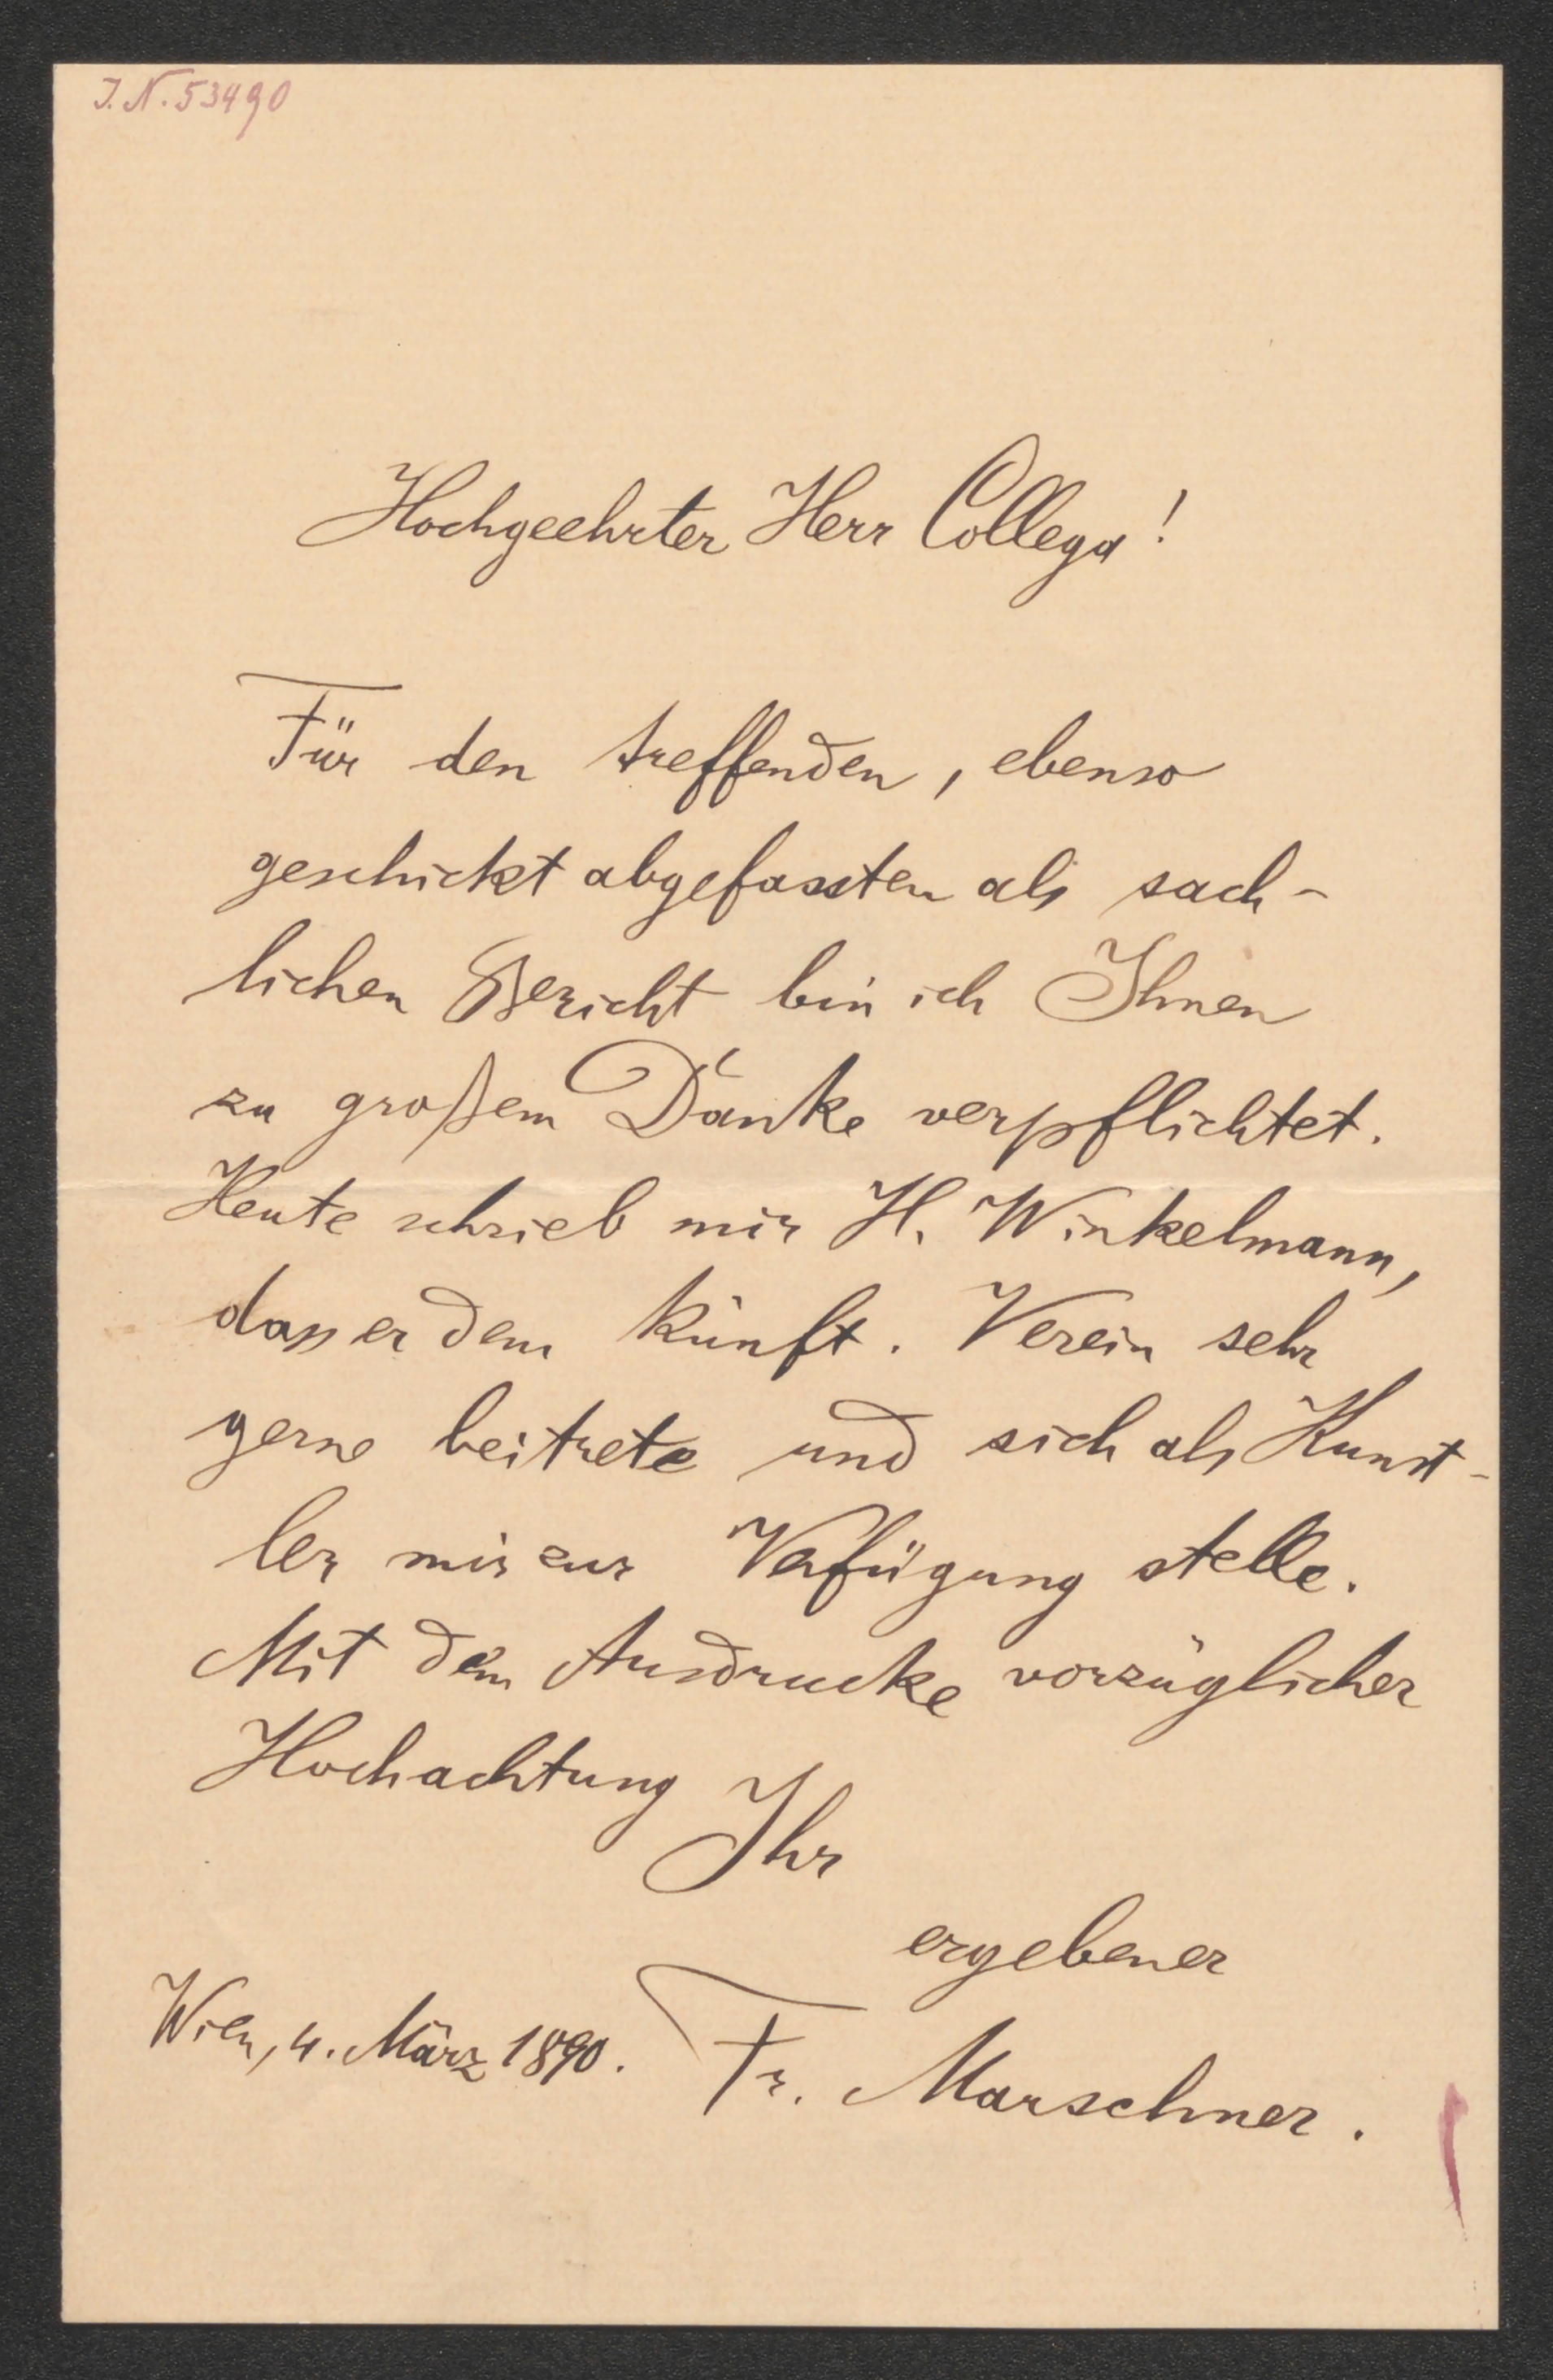 J. N. 53490
Hochgeehrter Herr Collega!
Für den treffenden, ebenso
geschickt abgefassten als sach-
lichen Bericht bin ich Ihnen
zu großem Danke verpflichtet.
Heute schrieb mir H. Winkelmann,
dass er dem künft. Verein sehr
gerne beitrete und sich als Kunst-
ler mir zur Verfügung stelle.
Mit dem Ausdrucke vorzüglicher
Hochachtung
Ihr
ergebener
Wien, 4. März 1890. Fr. Marschner.